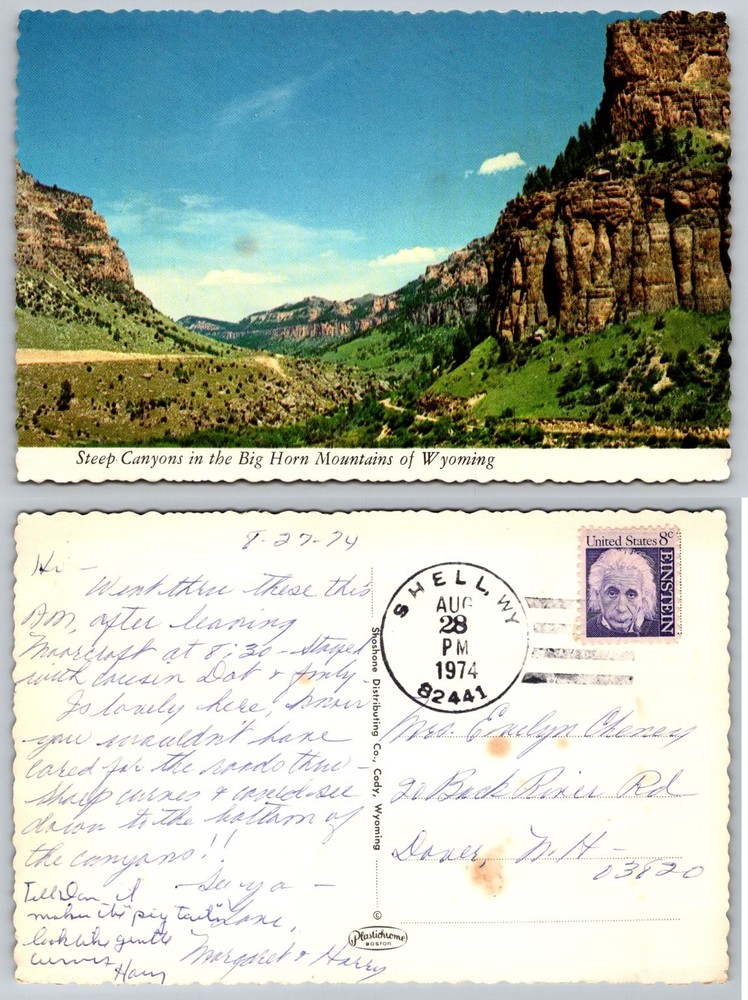 Steep Canyons in the Big Horn Mountains of Wyoming
8-27-74
Hi -
Went thru these this
A.M. after leaving
Moorcroft at 8:30 - stayed
with cousin Dot & fmly.
Is lovely here, know
you wouldn't have
cared for the roads thru -
sharp curves & could see
down to the bottom of
the canyons!!
See ya -
Love,
Margaret & Harry
Tell Dan it
makes the "pig tails"
look like gentle
curves
Harry
Shoshone Distributing Co., Cody, Wyoming
©
Plastichrome
BOSTON
SHELL, WY
AUG
28
PM
1974
82441
United States 8c
EINSTEIN
Mrs. Evelyn Cheney
20 Back River Rd
Dover, N.H -
03820